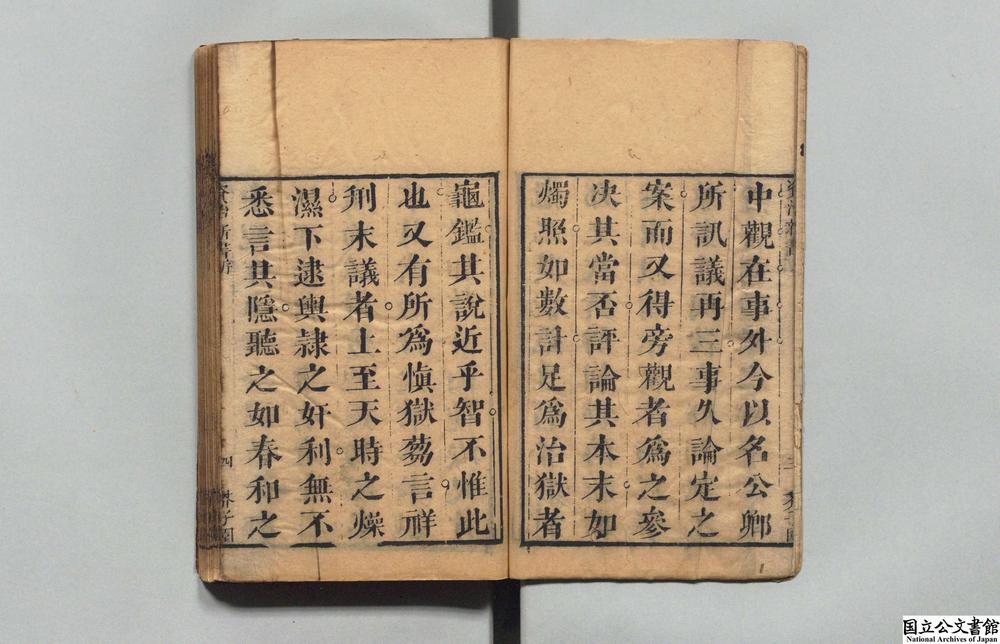 中觀在事外今以名公鄉
所訊議再三事久論定之
案而又得旁觀者爲之參
决其當否評論其本末如
燭照如數計足爲治獄者
龜鑑其說近乎智不惟此
也又有所爲愼獄蒭言祥
刑末議者上至天時之燥
濕下逮輿隷之奸利無不
悉言其隱聽之如春和之
四
芥子園
国立公文書館
National Archives of Japan